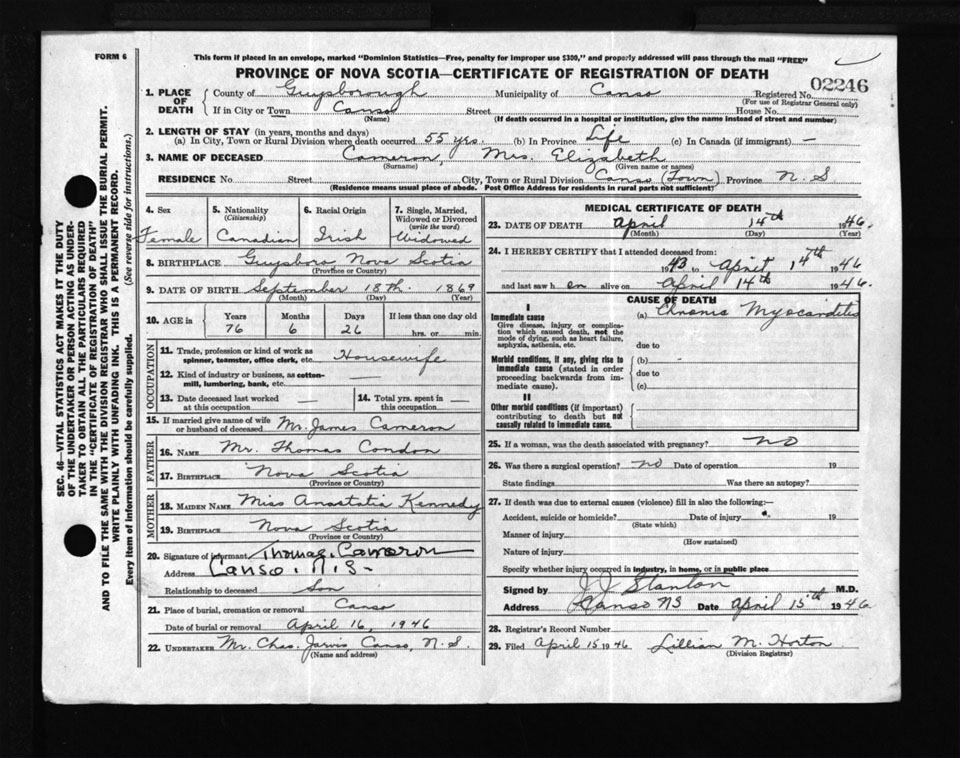 FORM 6
This form if placed in an envelope, marked "Dominion Statistics—Free, penalty for improper use $300," and properly addressed will pass through the mail "FREE"
PROVINCE OF NOVA SCOTIA—CERTIFICATE OF REGISTRATION OF DEATH
02246
1. PLACE OF DEATH
County of Guysborough Municipality of Canso Registered No.
(For use of Registrar General only)
If in City or Town Canso Street House No.
(Name) (If death occurred in a hospital or institution, give the name instead of street and number)
2. LENGTH OF STAY (in years, months and days)
(a) In City, Town or Rural Division where death occurred 55 yrs. (b) in Province Life (c) In Canada (if immigrant) —
3. NAME OF DECEASED Cameron, Mrs. Elizabeth
(Surname) (Given name or names)
RESIDENCE No. Street City, Town or Rural Division Canso (Town) Province N. S
(Residence means usual place of abode. Post Office Address for residents in rural parts not sufficient)
4. Sex Female
5. Nationality (Citizenship) Canadian
6. Racial Origin Irish
7. Single, Married, Widowed or Divorced (write the word) Widowed
8. BIRTHPLACE Guysboro Nova Scotia
(Province or Country)
9. DATE OF BIRTH September 18th. 1869
(Month) (Day) (Year)
10. AGE in Years 76 Months 6 Days 26 If less than one day old hrs. or min.
OCCUPATION
11. Trade, profession or kind of work as spinner, teamster, office clerk, etc. Housewife
12. Kind of industry or business, as cotton-mill, lumbering, bank, etc. —
13. Date deceased last worked at this occupation —
14. Total yrs. spent in this occupation —
15. If married give name of wife or husband of deceased Mr. James Cameron
FATHER
16. NAME Mr. Thomas Condon
17. BIRTHPLACE Nova Scotia
(Province or Country)
MOTHER
18. MAIDEN NAME Miss Anastatia Kennedy
19. BIRTHPLACE Nova Scotia
(Province or Country)
20. Signature of informant Thomas Cameron
Address Canso. N.S.
Relationship to deceased Son
21. Place of burial, cremation or removal Canso
Date of burial or removal April 16, 1946
22. UNDERTAKER Mr. Chas. Jarvis Canso, N.S.
(Name and address)
MEDICAL CERTIFICATE OF DEATH
23. DATE OF DEATH April 14th 1946.
(Month) (Day) (Year)
24. I HEREBY CERTIFY that I attended deceased from:
1943 to April 14th 1946
and last saw h er alive on April 14th 1946.
CAUSE OF DEATH
I
Immediate cause
Give disease, injury or complication which caused death, not the mode of dying, such as heart failure, asphyxia, asthenia, etc.
(a) Chronic Myocarditis
due to
Morbid conditions, if any, giving rise to immediate cause (stated in order proceeding backwards from immediate cause).
(b) -
due to
(c)
II
Other morbid conditions (if important) contributing to death but not causally related to immediate cause.
25. If a woman, was the death associated with pregnancy? NO
26. Was there a surgical operation? NO Date of operation 19
State findings Was there an autopsy?
27. If death was due to external causes (violence) fill in also the following:—
Accident, suicide or homicide? Date of injury 19
(State which)
Manner of injury
(How sustained)
Nature of injury
Specify whether injury occurred in industry, in home, or in public place
Signed by J. J. Stanton M.D.
Address Canso NS Date April 15th 1946
28. Registrar's Record Number
29. Filed April 15 1946 Lillian M. Horton
(Division Registrar)
SEC. 46—VITAL STATISTICS ACT MAKES IT THE DUTY
OF THE UNDERTAKER OR PERSON ACTING AS UNDER-
TAKER TO OBTAIN ALL THE PARTICULARS REQUIRED
IN THE "CERTIFICATE OF REGISTRATION OF DEATH"
AND TO FILE THE SAME WITH THE DIVISION REGISTRAR WHO SHALL ISSUE THE BURIAL PERMIT.
WRITE PLAINLY WITH UNFADING INK. THIS IS A PERMANENT RECORD.
Every item of information should be carefully supplied. (See reverse side for instructions.)